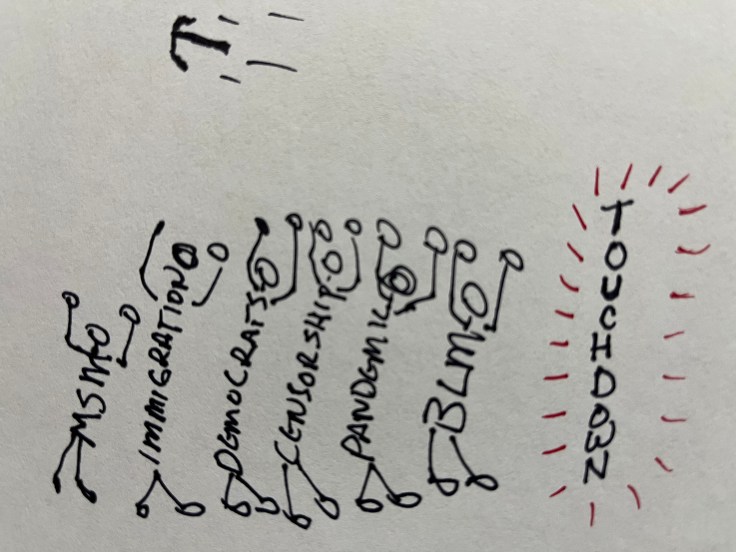 T
MSM
IMMIGRATION
DEMOCRATS
CENSORSHIP
PANDEMIC
BLM
TOUCHDOWN